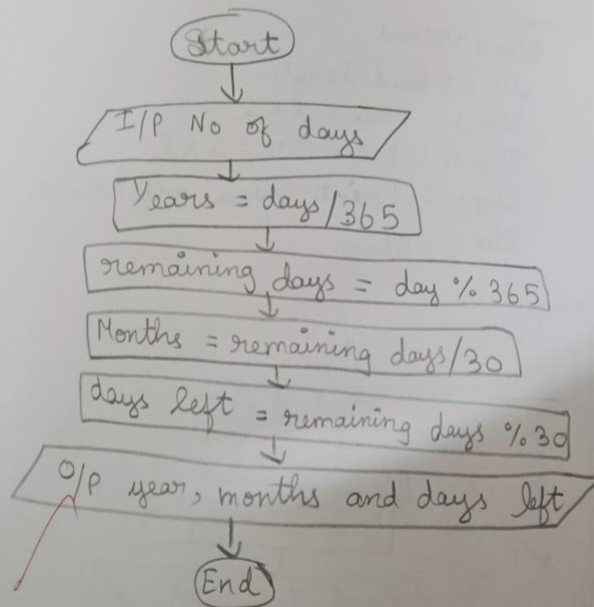 Start
I/P No of days
Years = days/365
remaining days = day % 365
Months = remaining days/30
days left = remaining days % 30
O/P year, months and days left
End